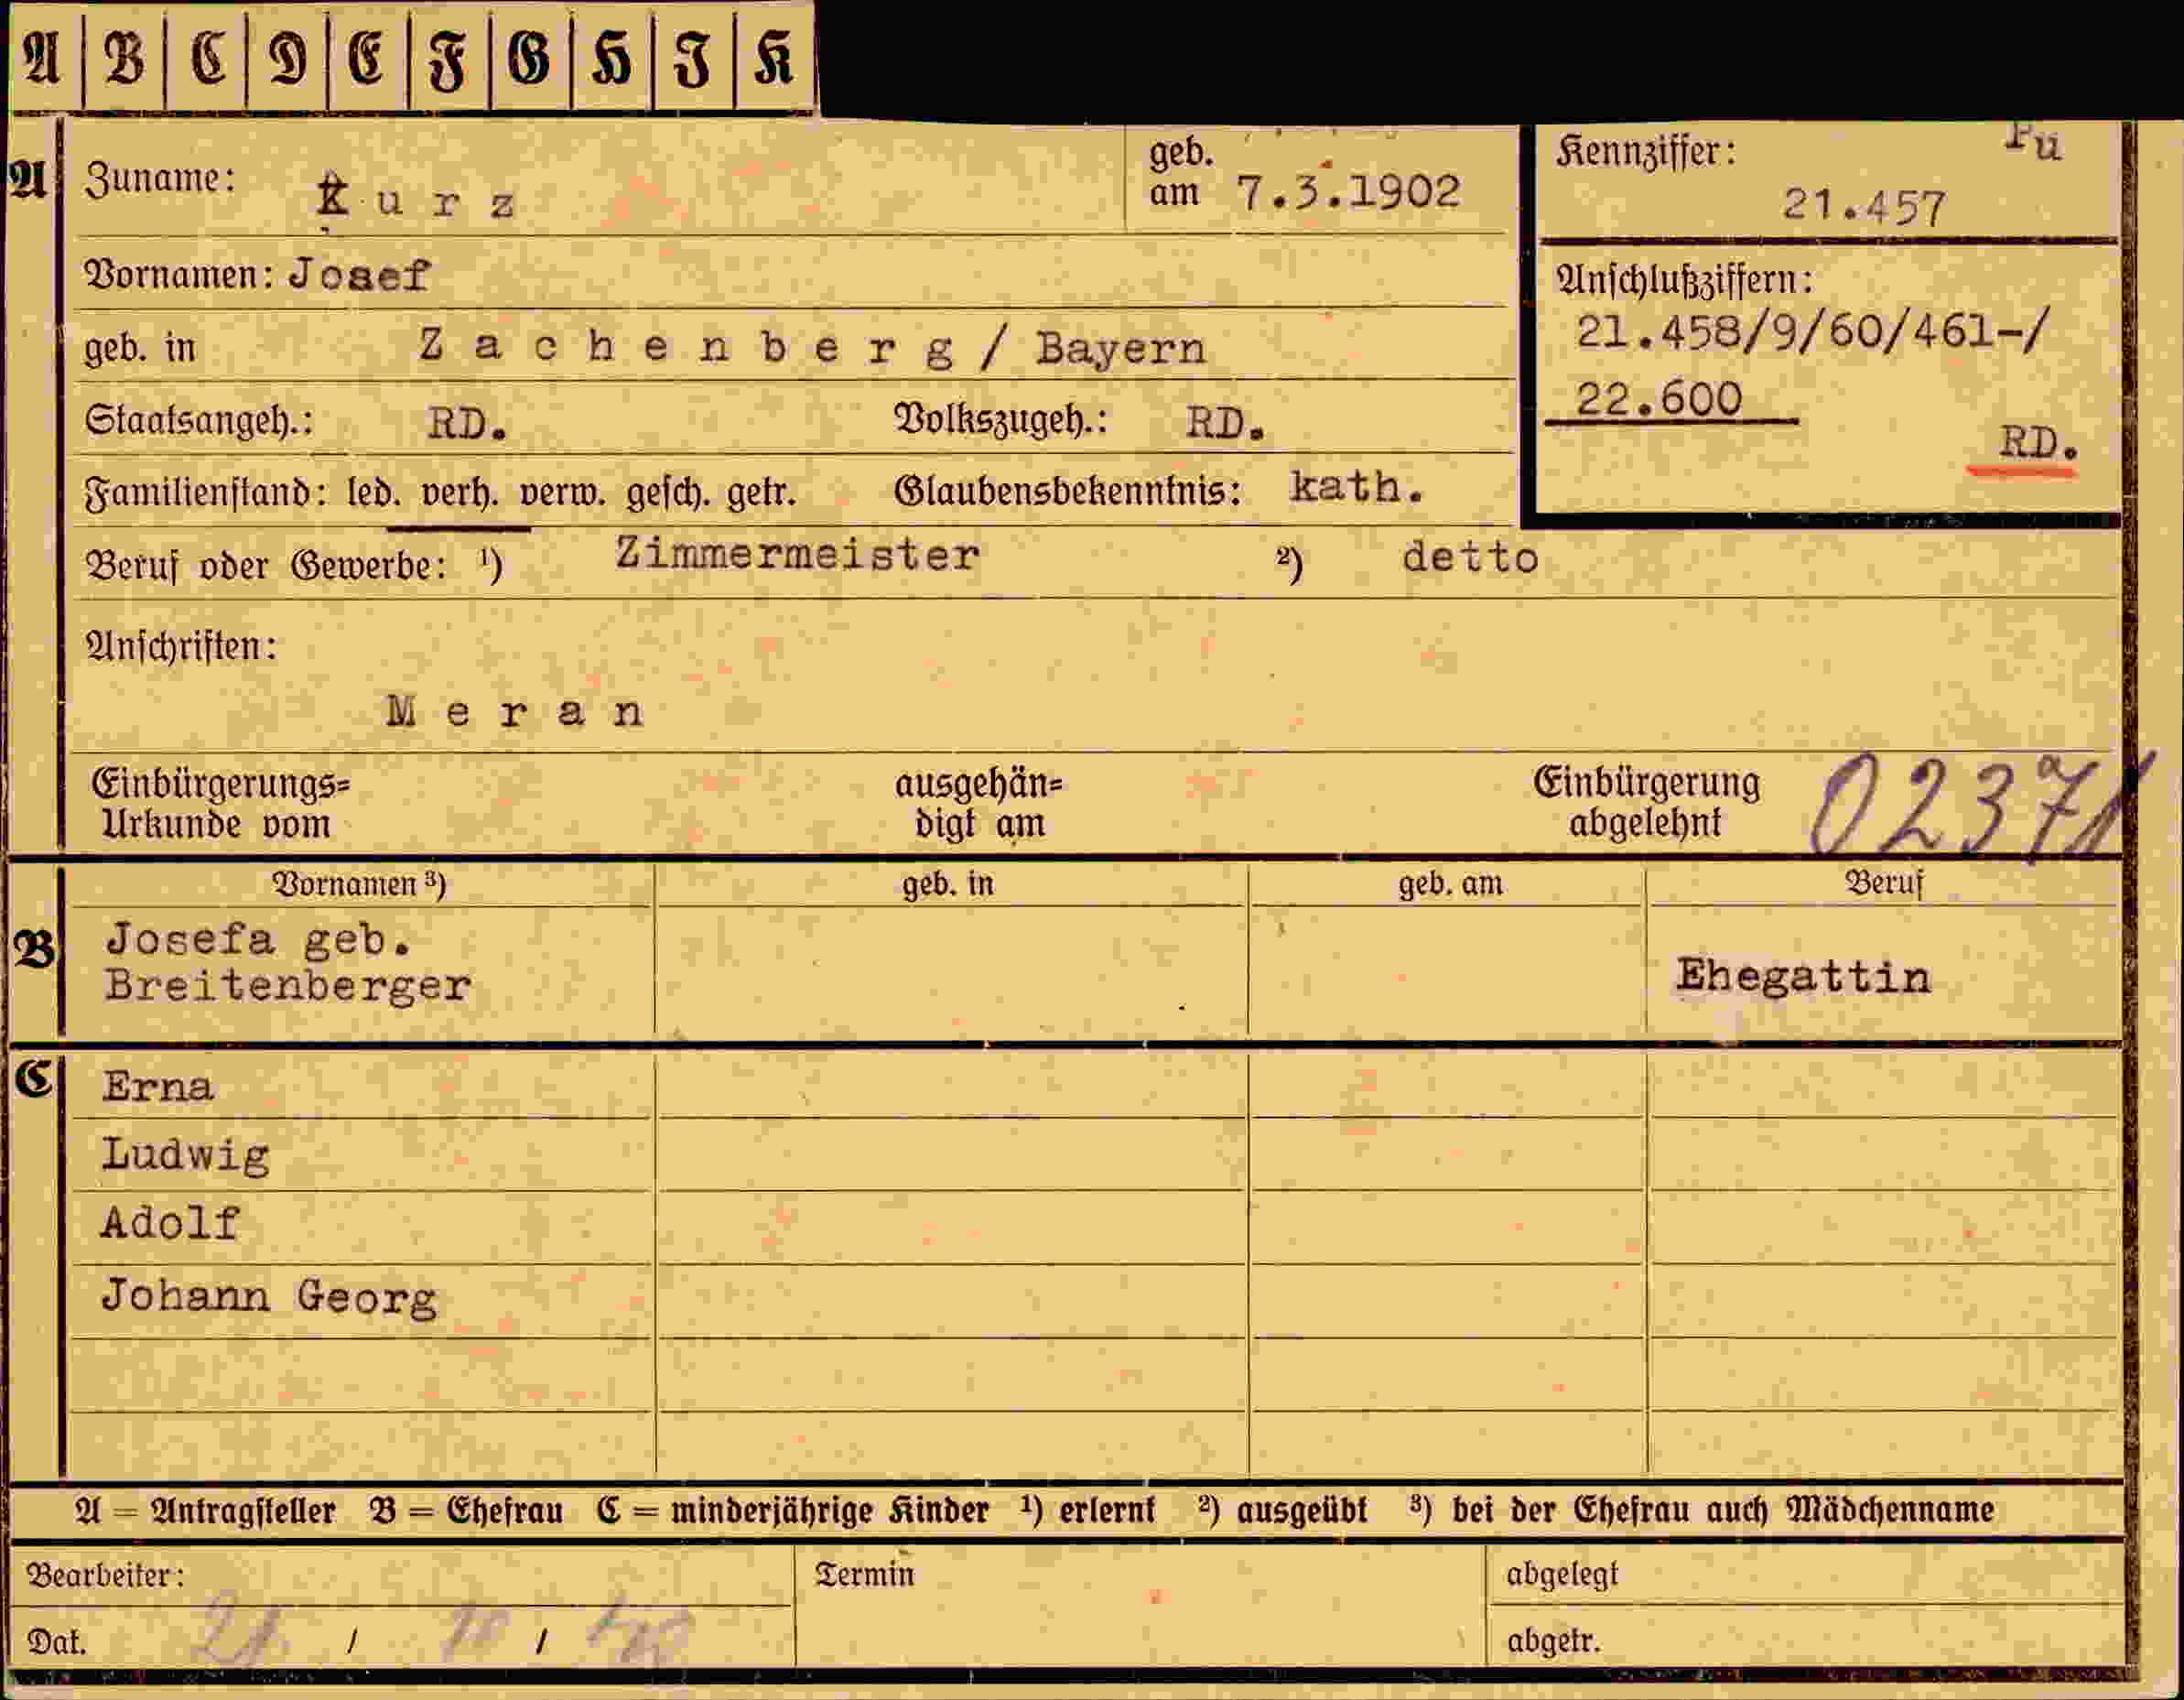 A B C D E F G H J K
A Zuname: Kurz geb. am 7.3.1902
Kennziffer: Pu
21.457
Vornamen: Josef
Anschlußziffern:
21.458/9/60/461-/
22.600
RD.
geb. in Zachenberg/ Bayern
Staatsangeh.: RD. Volkszugeh.: RD.
Familienstand: led. verh. verw. gesch. getr. Glaubensbekenntnis: kath.
Beruf oder Gewerbe: ¹) Zimmermeister ²) detto
Anschriften:
Meran
Einbürgerungs= ausgehän= Einbürgerung
Urkunde vom digt am abgelehnt
Vornamen ³) geb. in geb. am Beruf
B Josefa geb.
Breitenberger Ehegattin
C Erna
Ludwig
Adolf
Johann Georg
A = Antragsteller B = Ehefrau C = minderjährige Kinder ¹) erlernt ²) ausgeübt ³) bei der Ehefrau auch Mädchenname
Bearbeiter: Termin abgelegt
Dat. / / abgetr.